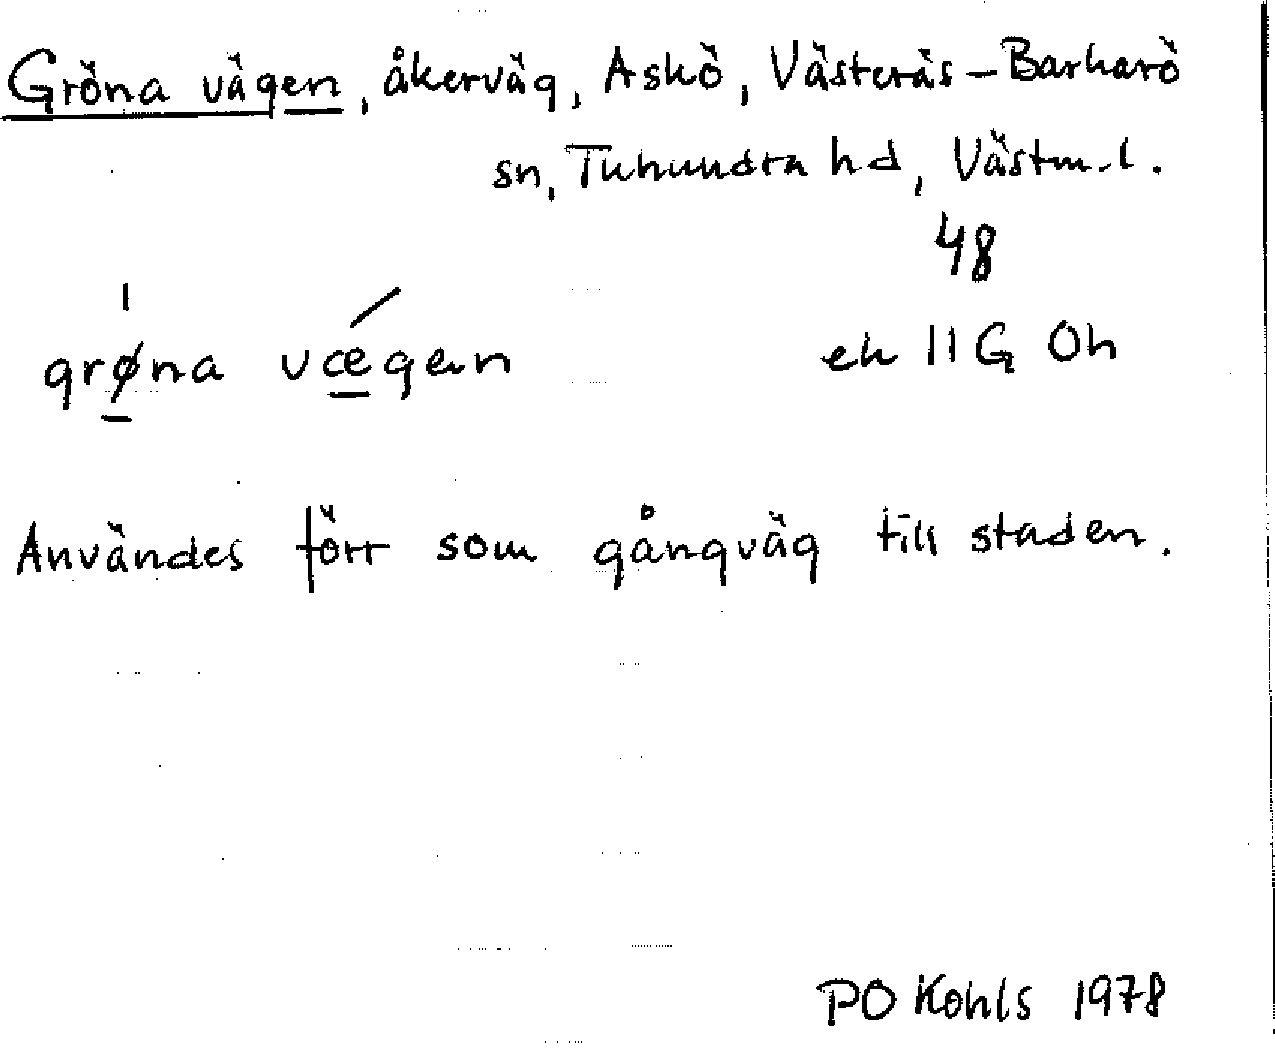 Gröna vägen, åkerväg, Askö, Västerås-Barkarö
sn, Tuhundra hd, Västm.l.
48
grøna vægen
ek 11 G 0h
Användes förr som gångväg till staden.
PO Kohls 1978